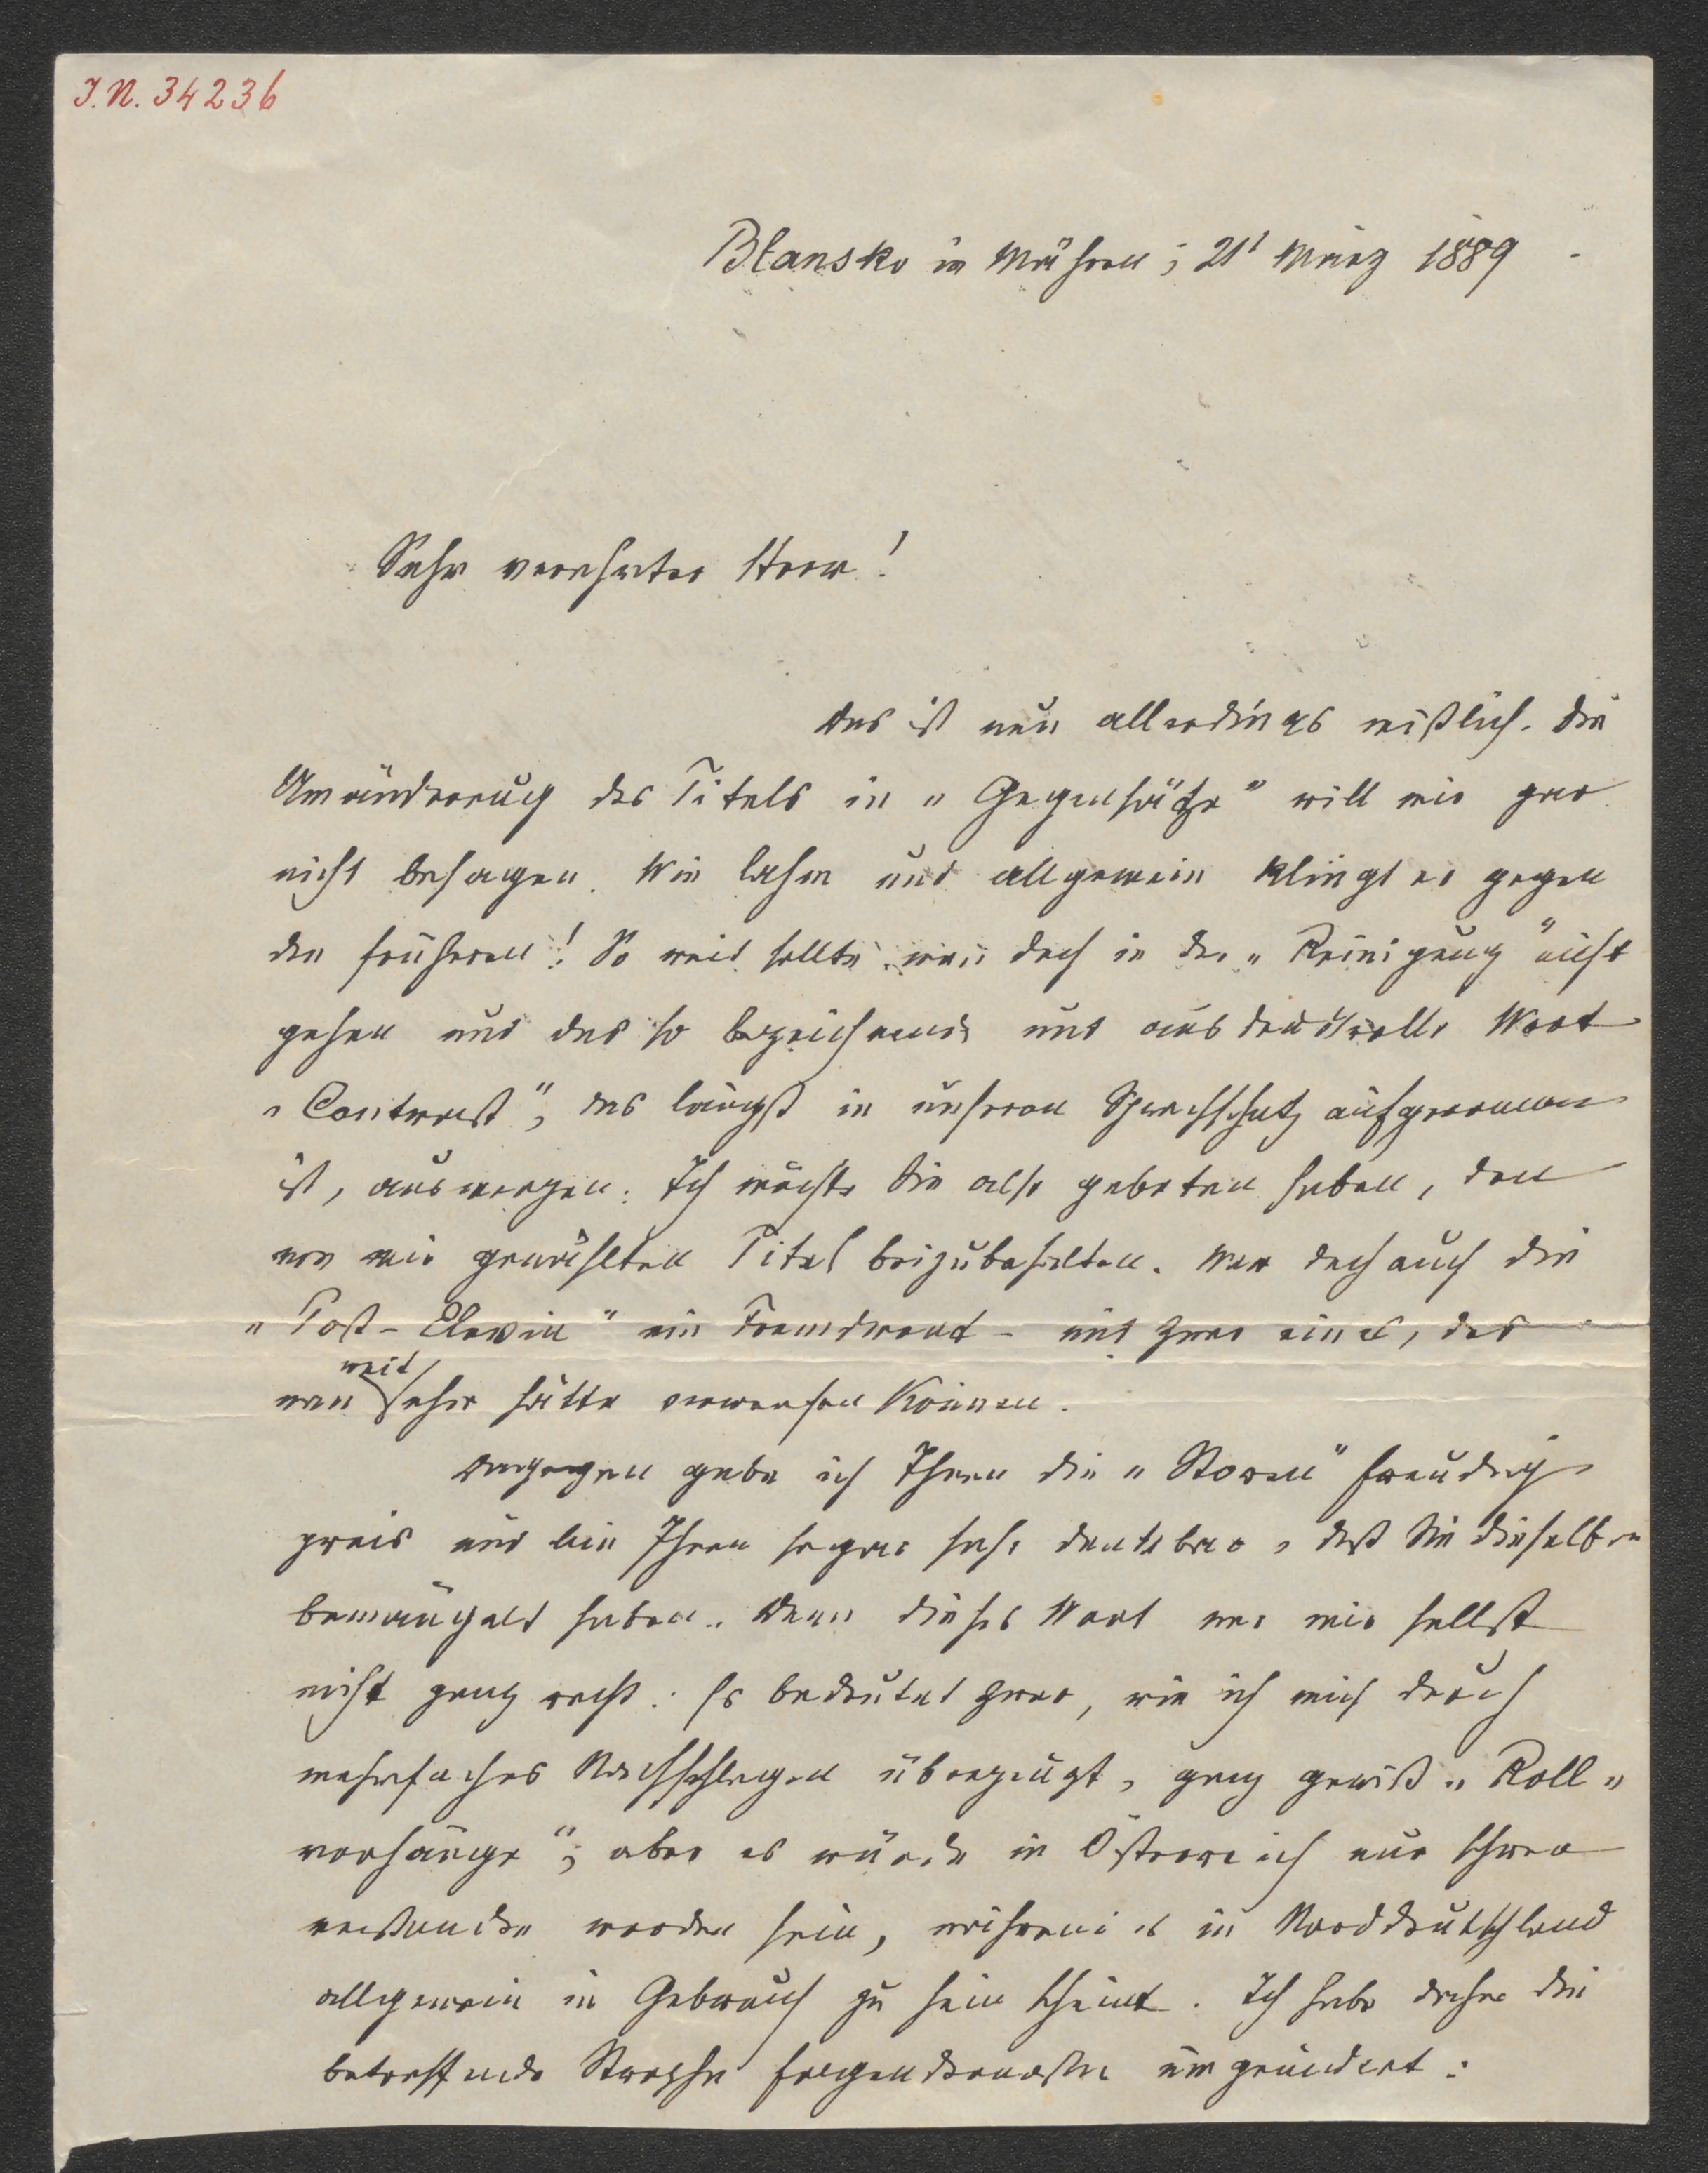 J.N. 34236
Blansko in Mähren, 21t März 1889
Sehr verehrter Herr!
Das ist nun allerdings mißlich. Die
Umänderung des Titels in „Gegensätze" will mir gar
nicht behagen. Wie lahm und allgemein klingt er gegen
den früheren! So weit sollte man doch in der „Reinigung" nicht
gehen und das so bezeichnende und ausdrucksvolle Wort
„Contrast", das längst in unseren Sprachschatz aufgenommen
ist, ausmerzen. Ich möchte Sie also gebeten haben, den
von mir gewählten Titel beizubehalten. War doch auch die
„Post-Elevin" ein Fremdwort - und zwar eines, das
man weit eher hätte verwerfen können.
Dagegen gebe ich Ihnen die „Storen" freudig
preis und bin Ihnen sogar sehr dankbar, daß Sie dieselben
bemängelt haben. Denn dieses Wort war mir selbst
nicht ganz recht. Es bedeutet zwar, wie ich mich durch
mehrfaches Nachschlagen überzeugt, ganz gewiß „Roll-
vorhänge"; aber es würde in Österreich nur schwer
verstanden worden sein, während es in Norddeutschland
allgemein in Gebrauch zu sein scheint. Ich habe daher die
betreffende Strophe folgendermaßen umgeändert: